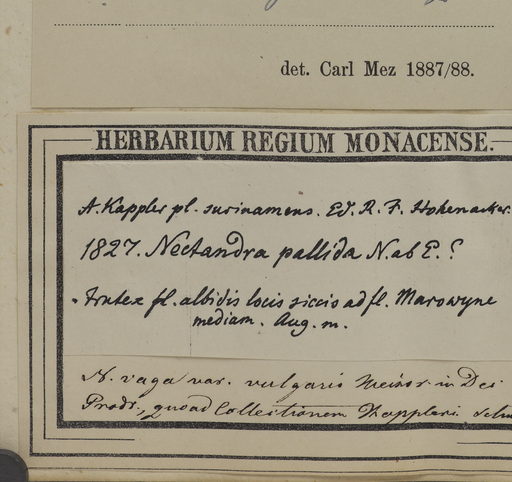 det. Carl Mez 1887/88.
HERBARIUM REGIUM MONACENSE.
A. Kappler pl. surinamens. Ed. R. F. Hohenacker.
1827. Nectandra pallida N. ab E. ?
Frutex fl. albidis locis siccis ad fl. Marowyne
mediam. Aug. m.
N. vaga var. vulgaris Meisn. in Dec
Prodr., quoad Collectionem Kappleri